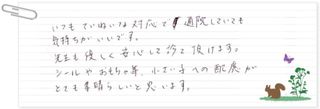 いつもていねいな対応で通院していても
気持ちがいいです。
先生も優しく安心して行って頂けます。
シールやおもちゃ等、小さい子への配慮が
とても素晴らしいと思います。